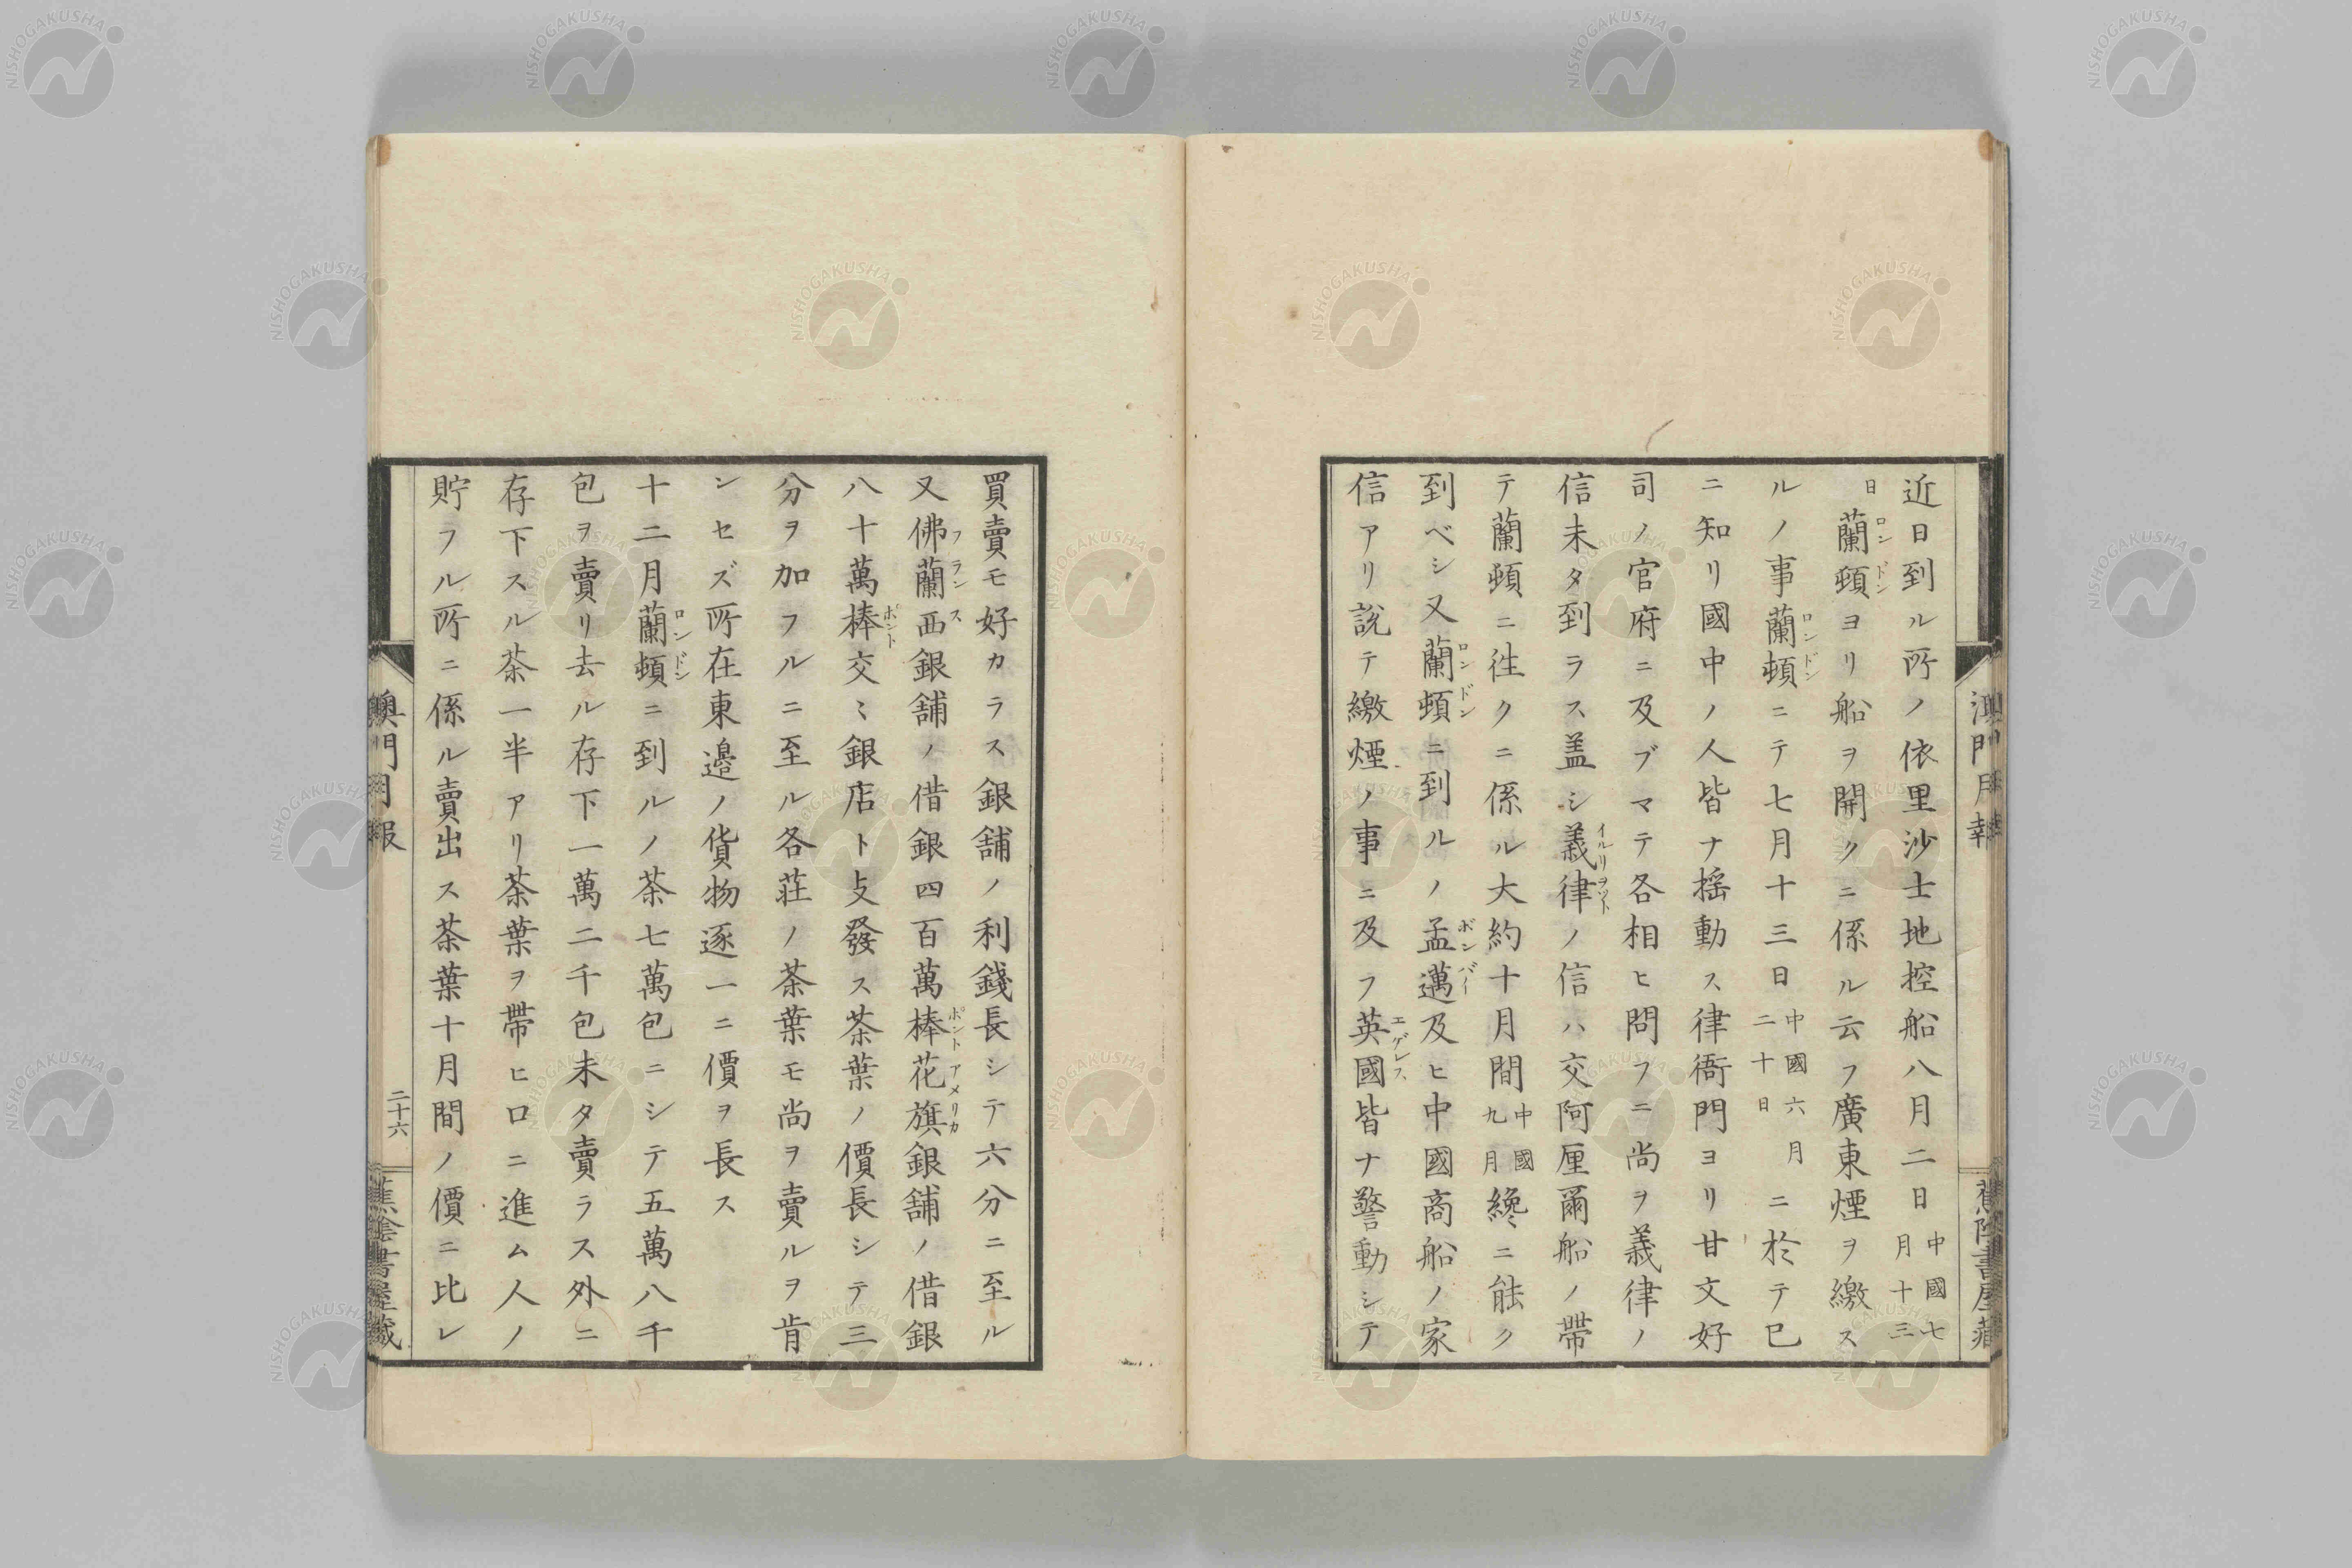 近日到ル所ノ依里沙士地控船八月二日中國七月十三
日蘭頓ヨリ船ヲ開クニ係ル云フ廣東煙ヲ繳ス
ロンドン
ルノ事蘭頓ニテ七月十三日中國六月二十日ニ於テ已
ロンドン
ニ知リ國中ノ人皆ナ揺動ス律衙門ヨリ甘文好
司ノ官府ニ及ブマテ各相ヒ問フニ尚ヲ義律ノ
信未タ到ラス盖シ義律ノ信ハ交阿厘爾船ノ帶
イルリヲット
テ蘭頓ニ徃クニ係ル大約十月間中國九月纔ニ能ク
到ベシ又蘭頓ニ到ルノ孟邁及ヒ中國商船ノ家
ロンドン
ボンバー
信アリ說テ繳煙ノ事ニ及フ英國皆ナ警動シテ
エゲレス
澳門月報
蕉陰書屋藏
買賣モ好カラス銀舖ノ利錢長シテ六分ニ至ル
又佛蘭西銀舖ノ借銀四百萬棒花旗銀舖ノ借銀
フランス
ポント
アメリカ
八十萬棒交ミ銀店ト攴發ス茶葉ノ價長シテ三
ポント
分ヲ加フルニ至ル各荘ノ茶葉モ尚ヲ賣ルヲ肯
ンセズ所在東邉ノ貨物逐一ニ價ヲ長ス
十二月蘭頓ニ到ルノ茶七萬包ニシテ五萬八千
ロンドン
包ヲ賣リ去ル存下一萬二千包未タ賣ラス外ニ
存下スル茶一半アリ茶葉ヲ帶ヒ口ニ進ム人ノ
貯フル所ニ係ル賣出ス茶葉十月間ノ價ニ比レ
澳門月報
二十六
蕉陰書屋藏
NISHOGAKUSHA